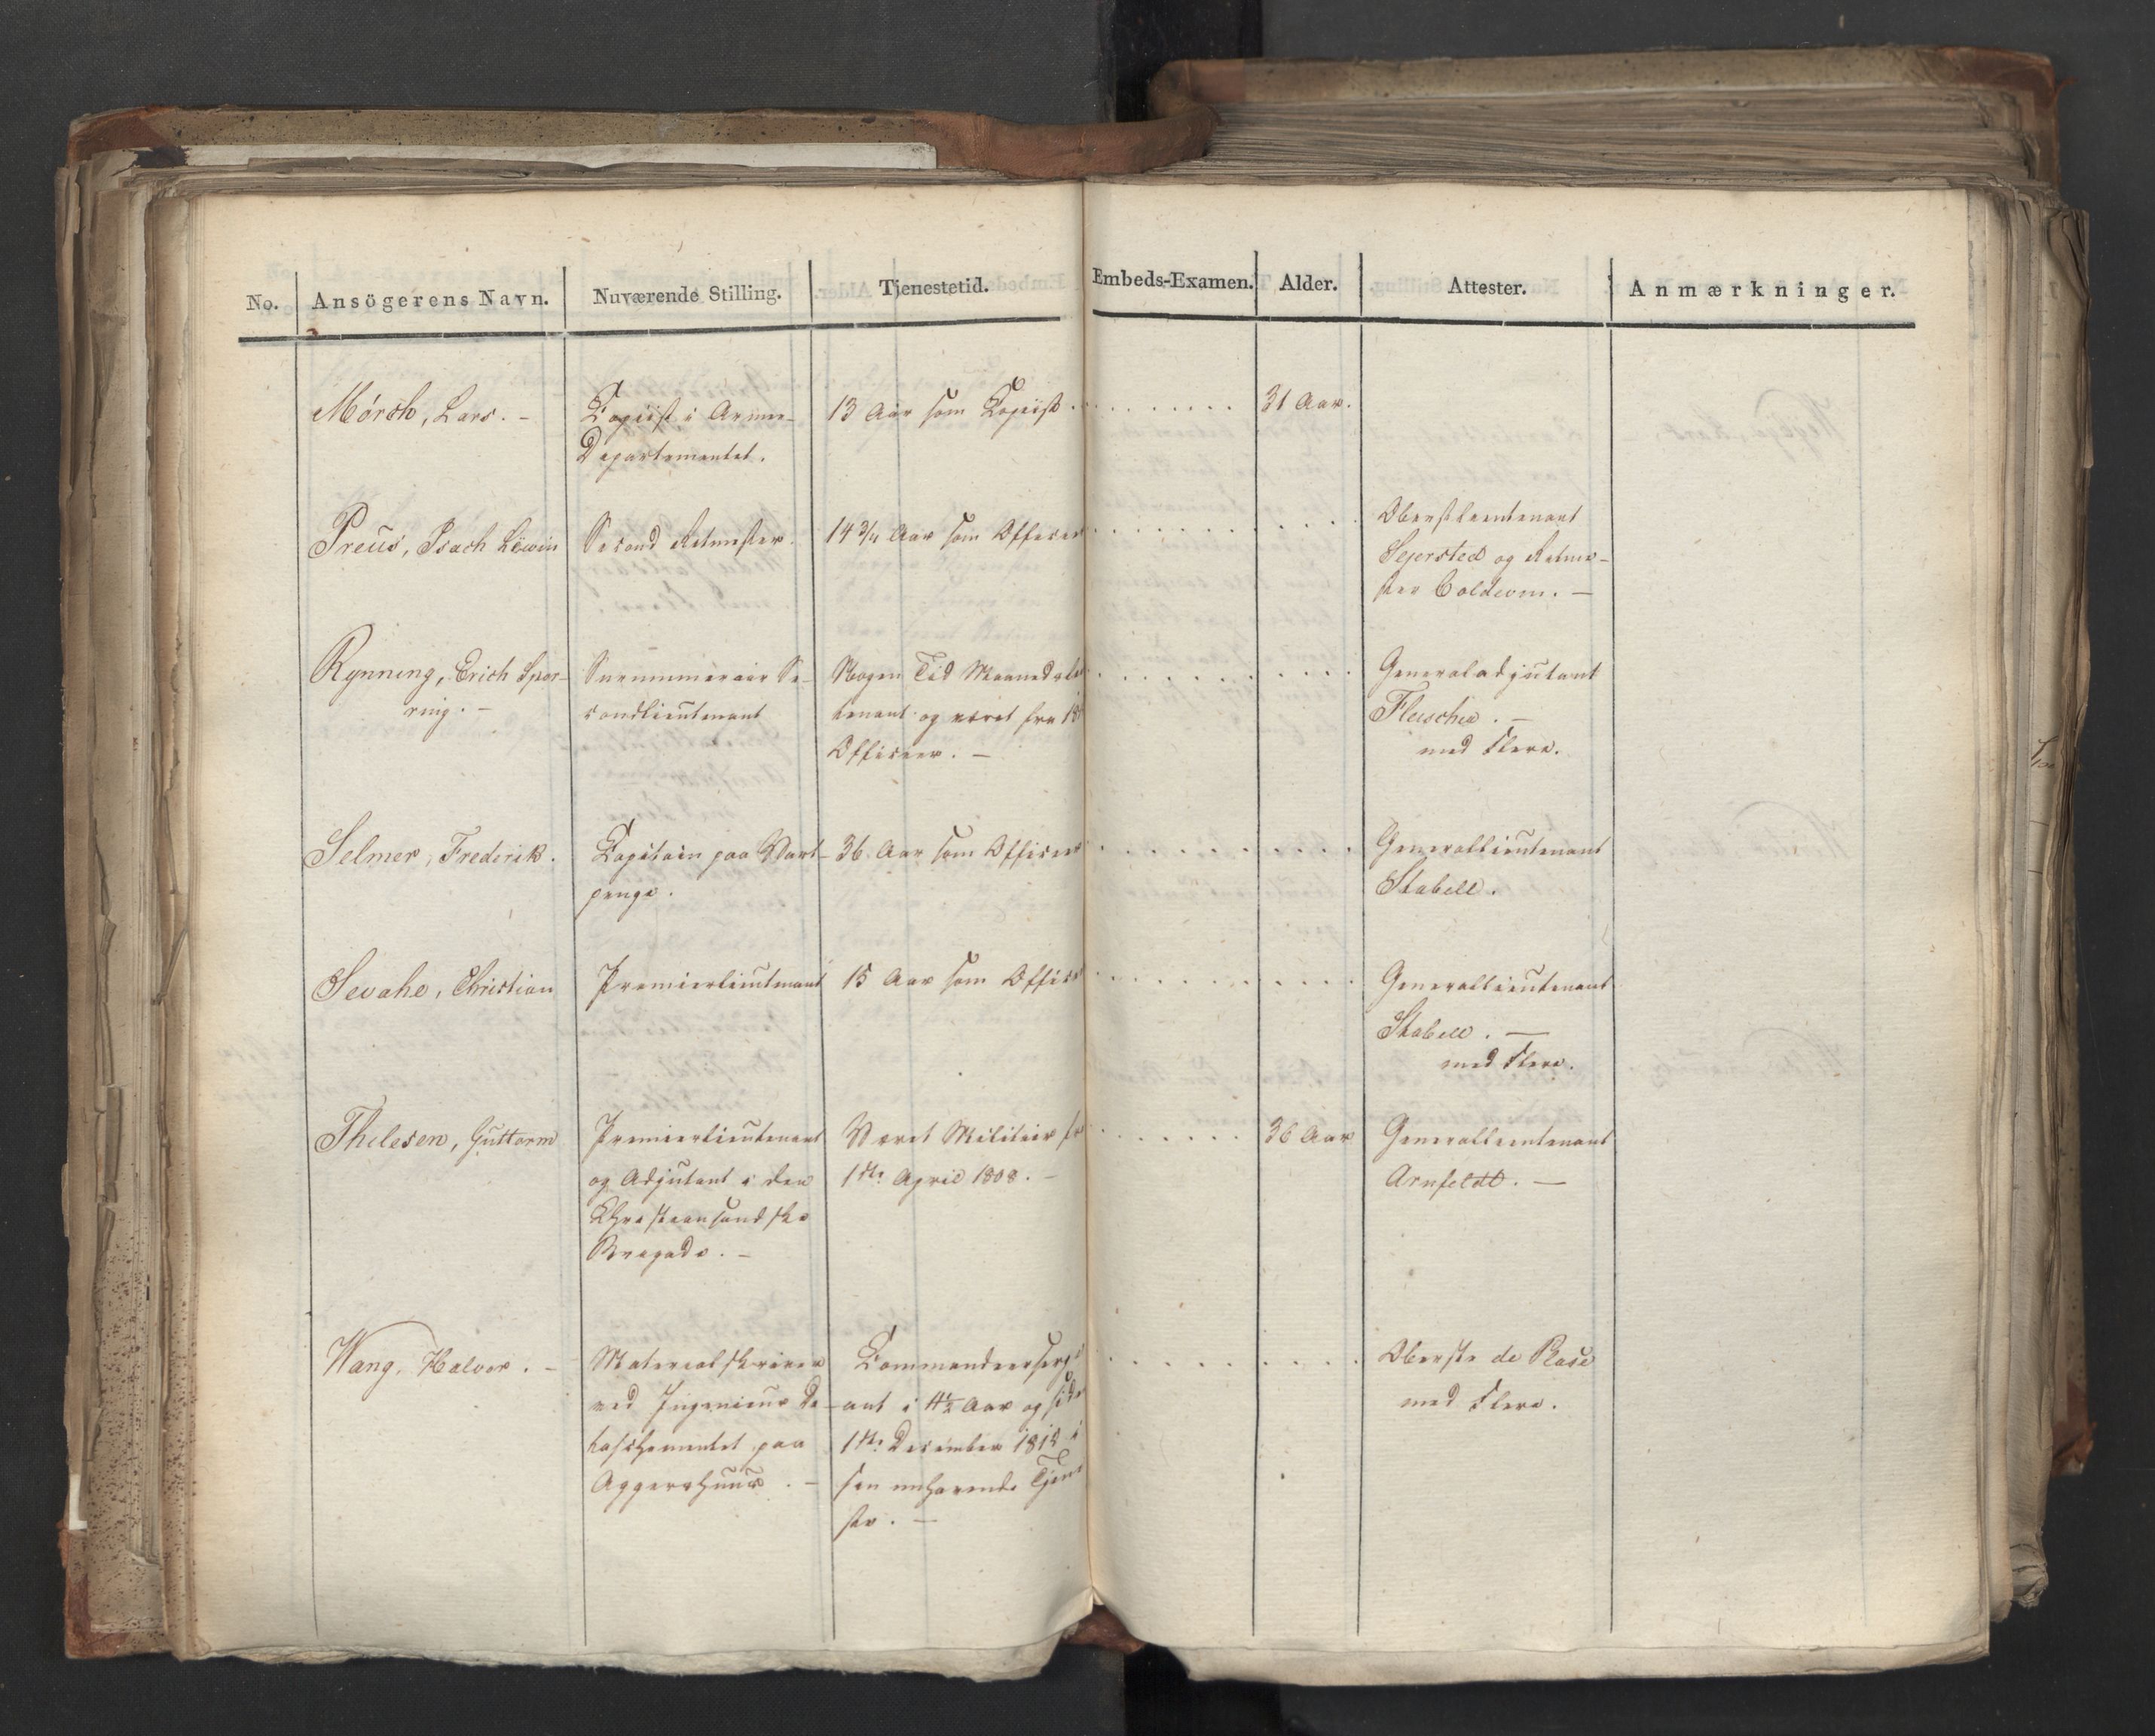 No. Ansögerens Navn. Nuværende Stilling. Tjenestetid. Embeds-Examen. Alder. Attester. Anmærkninger.
Mörch, Lars. - Copiist i Armee- 13 Aar som Copiist. 31 Aar.
Departementet.
Oberstlieutenant
Preus, Isach Lëwin Second Ritmester. 14 3/4 Aar som Officeer
Sejersted og Ritme-
ster Coldevin. -
Rynning, Erich Spor- Surnumerair Se- Nogen Tid Maaneds Generaladjutant
ring. - condlieutenant tenant og været fra Fleischer. -
Officeer. - med Flere.
Selmer, Frederik. Capitain paa Vart- 36 Aar som Officeer Generallieutenant
penge. Stabell.
Christian Premierlieutenant 15 Aar som Officeer Generallieutenant
Stabell. -
med Flere.
Thilesen, Guttorm Premierlieutenant Været Militair fra 36 Aar Generallieutenant
og Adjutant i den 1ste April 1808. - Arnfeldt. -
Christiansandske
Brigade. -
Wang, Halvor. - Materialskriver Commandeersergi- Oberste de
ved Ingenieur De- ant i 4½ Aar og siden med Flere.
taschementet paa 1ste December 1812 i
Aggershuus. - sin nuhavende Tjene
ste. -